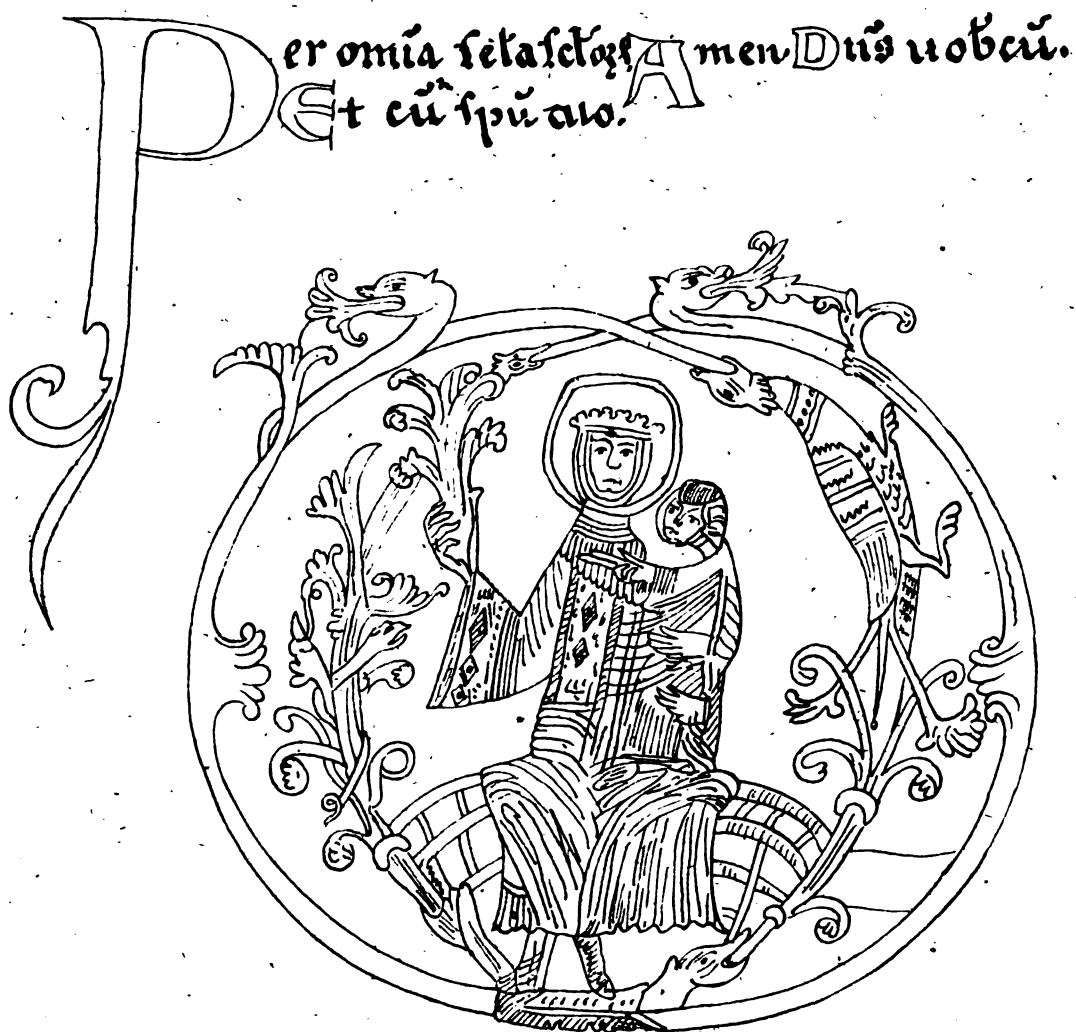 Per om̄ia sc̄la sc̄loꝝ Amen Dn̄s uobcū.
Et cū sp̄u tuo.